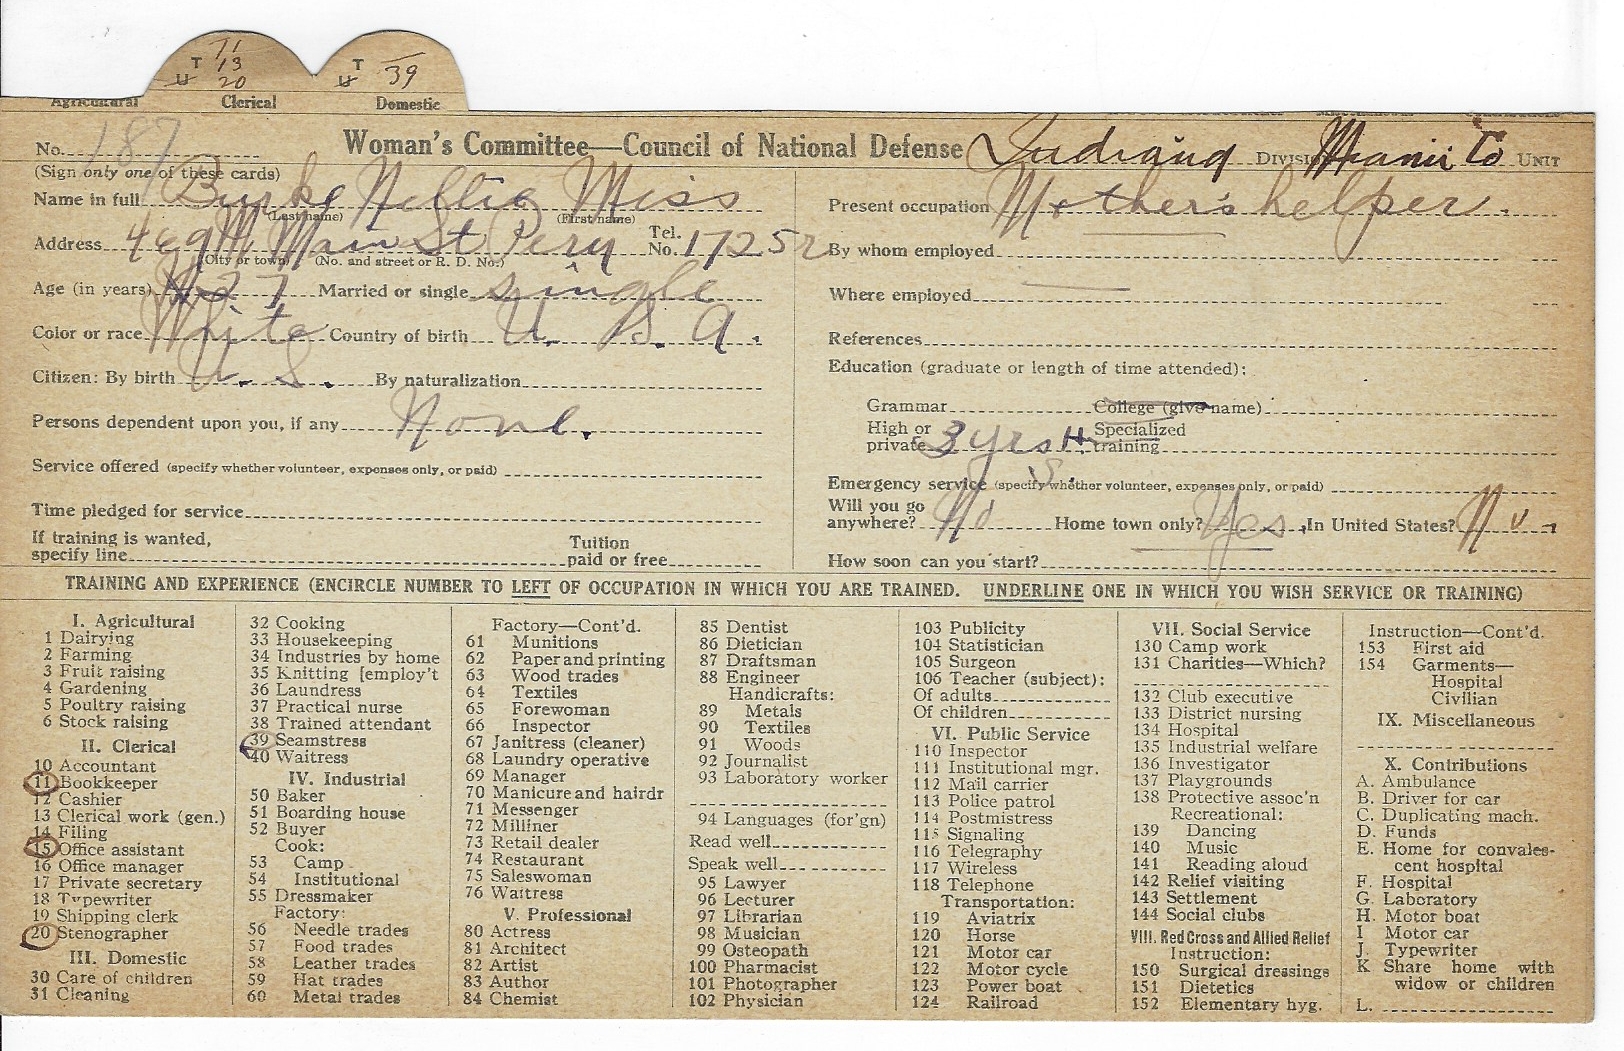 T 11
13
U 20
T 39
U
Agricultural Clerical Domestic
No. 187 Woman's Committee—Council of National Defense Indiana Division Miami Co Unit
(Sign only one of these cards)
Name in full Burke Nellie Miss
(Last name) (First name)
Address 469 W Main St Peru Tel. No. 1725
(City or town) (No. and street or R. D. No.)
Age (in years) 27 Married or single single
Color or race White Country of birth U. S. A.
Citizen: By birth U. S. By naturalization
Persons dependent upon you, if any None.
Service offered (specify whether volunteer, expenses only, or paid)
Time pledged for service
If training is wanted, specify line Tuition paid or free
Present occupation Mother's helper.
By whom employed
Where employed
References
Education (graduate or length of time attended):
Grammar College (give name)
High or private 3 yrs H. S. Specialized training
Emergency service (specify whether volunteer, expenses only, or paid)
Will you go anywhere? No Home town only? Yes. In United States? No.
How soon can you start?
TRAINING AND EXPERIENCE (ENCIRCLE NUMBER TO LEFT OF OCCUPATION IN WHICH YOU ARE TRAINED. UNDERLINE ONE IN WHICH YOU WISH SERVICE OR TRAINING)
I. Agricultural
1 Dairying
2 Farming
3 Fruit raising
4 Gardening
5 Poultry raising
6 Stock raising
II. Clerical
10 Accountant
11 Bookkeeper
12 Cashier
13 Clerical work (gen.)
14 Filing
15 Office assistant
16 Office manager
17 Private secretary
18 Typewriter
19 Shipping clerk
20 Stenographer
III. Domestic
30 Care of children
31 Cleaning
32 Cooking
33 Housekeeping
34 Industries by home
35 Knitting [employ't
36 Laundress
37 Practical nurse
38 Trained attendant
39 Seamstress
40 Waitress
IV. Industrial
50 Baker
51 Boarding house
52 Buyer
Cook:
53 Camp
54 Institutional
55 Dressmaker
Factory:
56 Needle trades
57 Food trades
58 Leather trades
59 Hat trades
60 Metal trades
Factory—Cont'd.
61 Munitions
62 Paper and printing
63 Wood trades
64 Textiles
65 Forewoman
66 Inspector
67 Janitress (cleaner)
68 Laundry operative
69 Manager
70 Manicure and hairdr
71 Messenger
72 Milliner
73 Retail dealer
74 Restaurant
75 Saleswoman
76 Waitress
V. Professional
80 Actress
81 Architect
82 Artist
83 Author
84 Chemist
85 Dentist
86 Dietician
87 Draftsman
88 Engineer
Handicrafts:
89 Metals
90 Textiles
91 Woods
92 Journalist
93 Laboratory worker
94 Languages (for'gn)
Read well
Speak well
95 Lawyer
96 Lecturer
97 Librarian
98 Musician
99 Osteopath
100 Pharmacist
101 Photographer
102 Physician
103 Publicity
104 Statistician
105 Surgeon
106 Teacher (subject):
Of adults
Of children
VI. Public Service
110 Inspector
111 Institutional mgr.
112 Mail carrier
113 Police patrol
114 Postmistress
115 Signaling
116 Telegraphy
117 Wireless
118 Telephone
Transportation:
119 Aviatrix
120 Horse
121 Motor car
122 Motor cycle
123 Power boat
124 Railroad
VII. Social Service
130 Camp work
131 Charities—Which?
132 Club executive
133 District nursing
134 Hospital
135 Industrial welfare
136 Investigator
137 Playgrounds
138 Protective assoc'n
Recreational:
139 Dancing
140 Music
141 Reading aloud
142 Relief visiting
143 Settlement
144 Social clubs
VIII. Red Cross and Allied Relief
Instruction:
150 Surgical dressings
151 Dietetics
152 Elementary hyg.
Instruction—Cont'd.
153 First aid
154 Garments—
Hospital
Civilian
IX. Miscellaneous
X. Contributions
A. Ambulance
B. Driver for car
C. Duplicating mach.
D. Funds
E. Home for convales-
cent hospital
F. Hospital
G. Laboratory
H. Motor boat
I Motor car
J. Typewriter
K Share home with
widow or children
L.